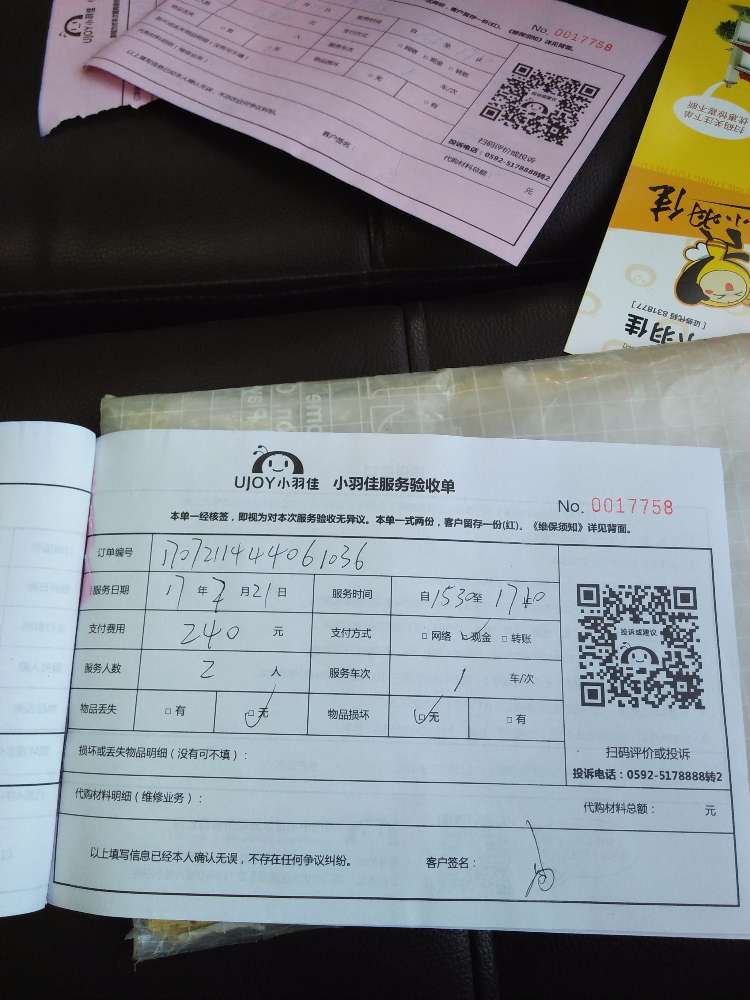 No. 0017758
□ 网络 □ 现金 □ 转账
□ 无
车/次
□ 有
以上填写信息已经本人确认无误，不存在任何争议纠纷。
客户签名：
代购材料总额：
元
扫码评价或投诉
投诉电话：0592-5178888转2
扫码关注下单
优惠惊喜不断
小羽佳
[ 证券代码 831877 ]
小羽佳
UJOY小羽佳 小羽佳服务验收单
No. 0017758
本单一经核签，即视为对本次服务验收无异议。本单一式两份，客户留存一份(红)，《维保须知》详见背面。
订单编号
服务日期 17 年 7 月 21 日 服务时间 自 1530 至
支付费用 240 元 支付方式 □ 网络 □ 现金 □ 转账
服务人数 2 人 服务车次 1 车/次
物品丢失 □ 有 □ 无 物品损坏 □ 无 □ 有
损坏或丢失物品明细（没有可不填）：
代购材料明细（维修业务）：
代购材料总额： 元
以上填写信息已经本人确认无误，不存在任何争议纠纷。 客户签名：
投诉或建议
扫码评价或投诉
投诉电话：0592-5178888转2